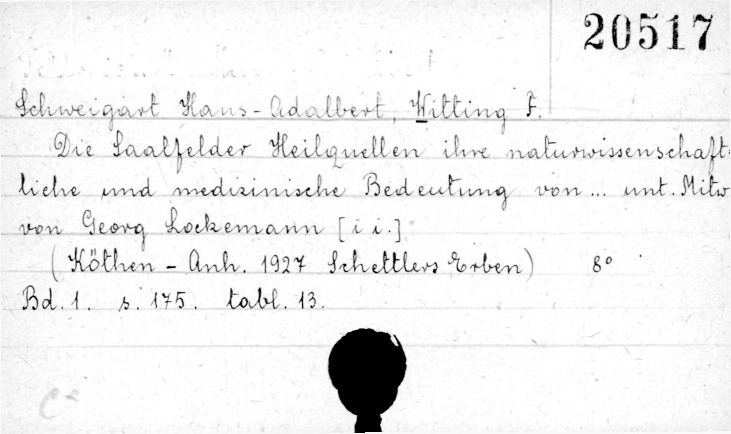 20517
Schweigart Hans-Adalbert, Witting F.
Die Saalfelder Heilquellen ihre naturwissenschaft-
liche und medizinische Bedeutung von ... unt. Mitw
von Georg Lockemann [i i.]
(Köthen - Anh. 1927 Schettlers Erben) 8°
Bd. 1. s. 175. tabl. 13.